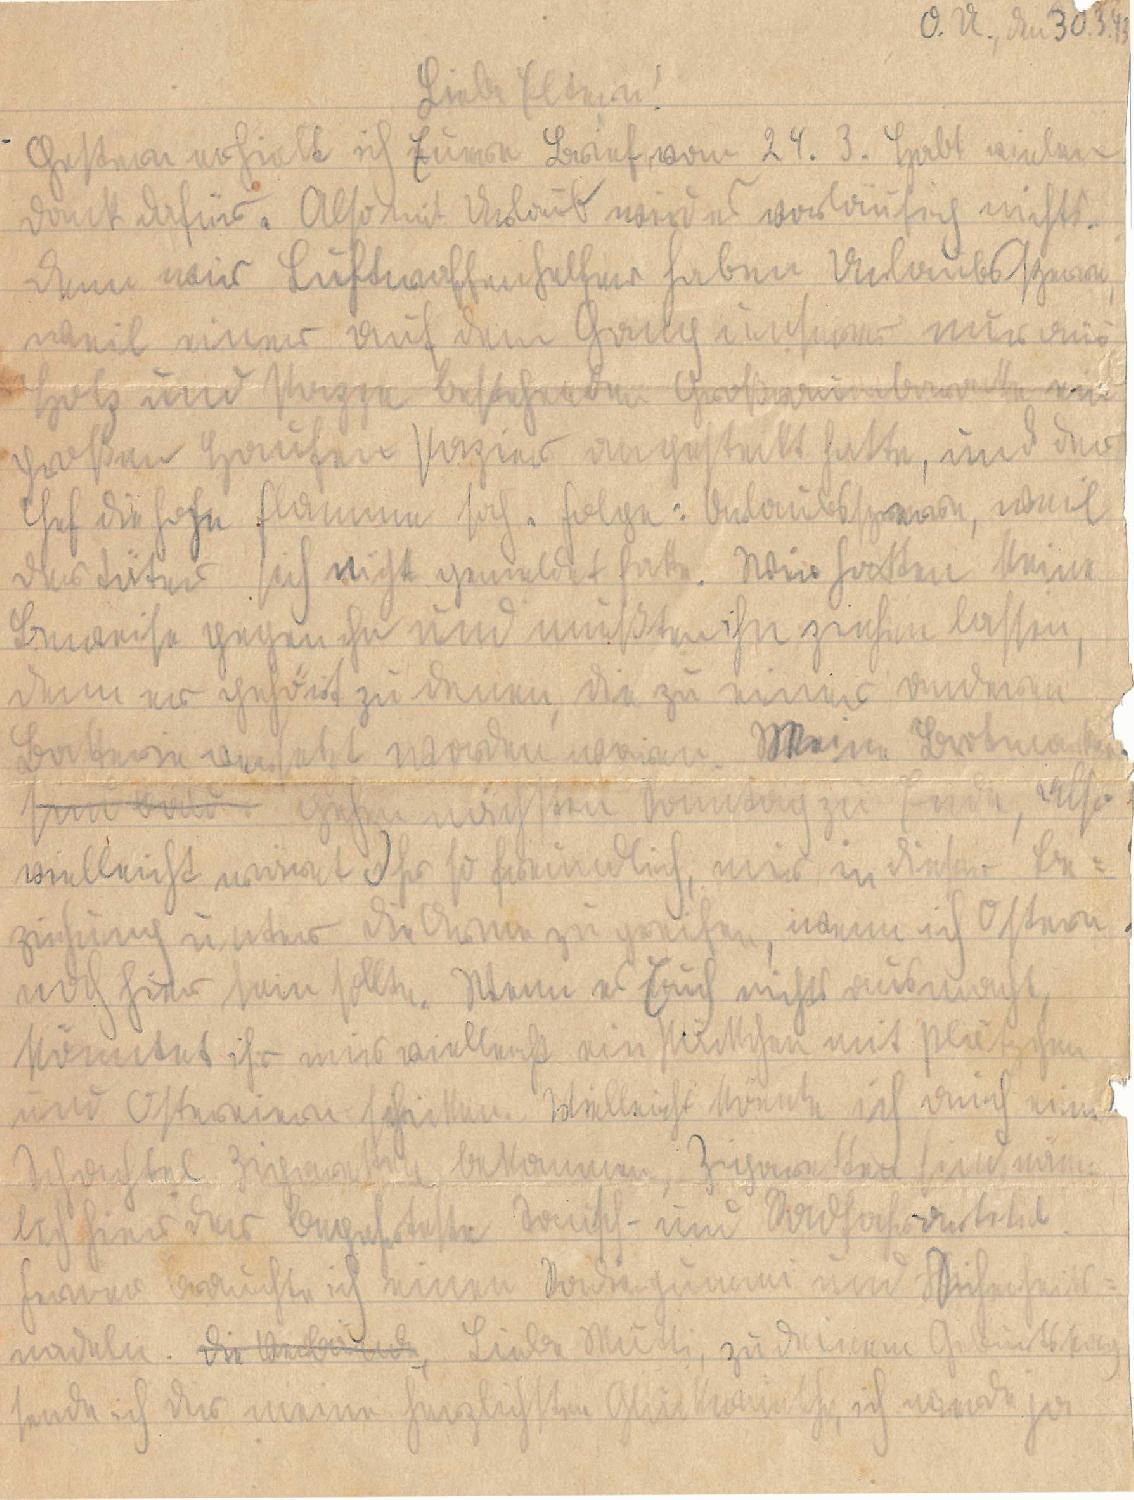 O. U., den 30.3.43
Liebe Eltern!
Gestern erhielt ich Euern Brief vom 24. 3. Habt vielen
Dank dafür. Also mit Urlaub wird es vorläufig nichts.
Denn wir Luftwaffenhelfer haben Urlaubssperre,
weil einer auf dem Gang unserer nur aus
Holz und Pappe bestehenden Großraumbaracke ein
großen Haufen Papier angesteckt hatte, und der
Chef die hohe Flamme sah. Folge: Urlaubssperre, weil
der Täter sich nicht gemeldet hatte. Wir hatten keine
Beweise gegen ihn und mußten ihn ziehen lassen,
denn er gehört zu denen, die zu einer anderen
Batterie versetzt worden waren. Meine Brotmarken
sind bald gehen nächsten Sonntag zu Ende, also
vielleicht wäret Ihr so freundlich, mir in dieser Be=
ziehung unter die Arme zu greifen, wenn ich Ostern
noch hier sein sollte. Wenn es Euch nichts ausmacht,
könntet ihr mir vielleicht ein Päckchen mit Plätzchen
und Ostereiern schicken. Vielleicht könnte ich auch eine
Schachtel Zigaretten bekommen, Zigaretten sind näm=
lich hier der begehrteste Tausch- und
Ferner brauchte ich einen Radiergummi und Sicherheits=
nadeln. Die Liebe Mutti, zu deinem Geburtstag
sende ich dir meine herzlichsten Glückwünsche, ich werde ja